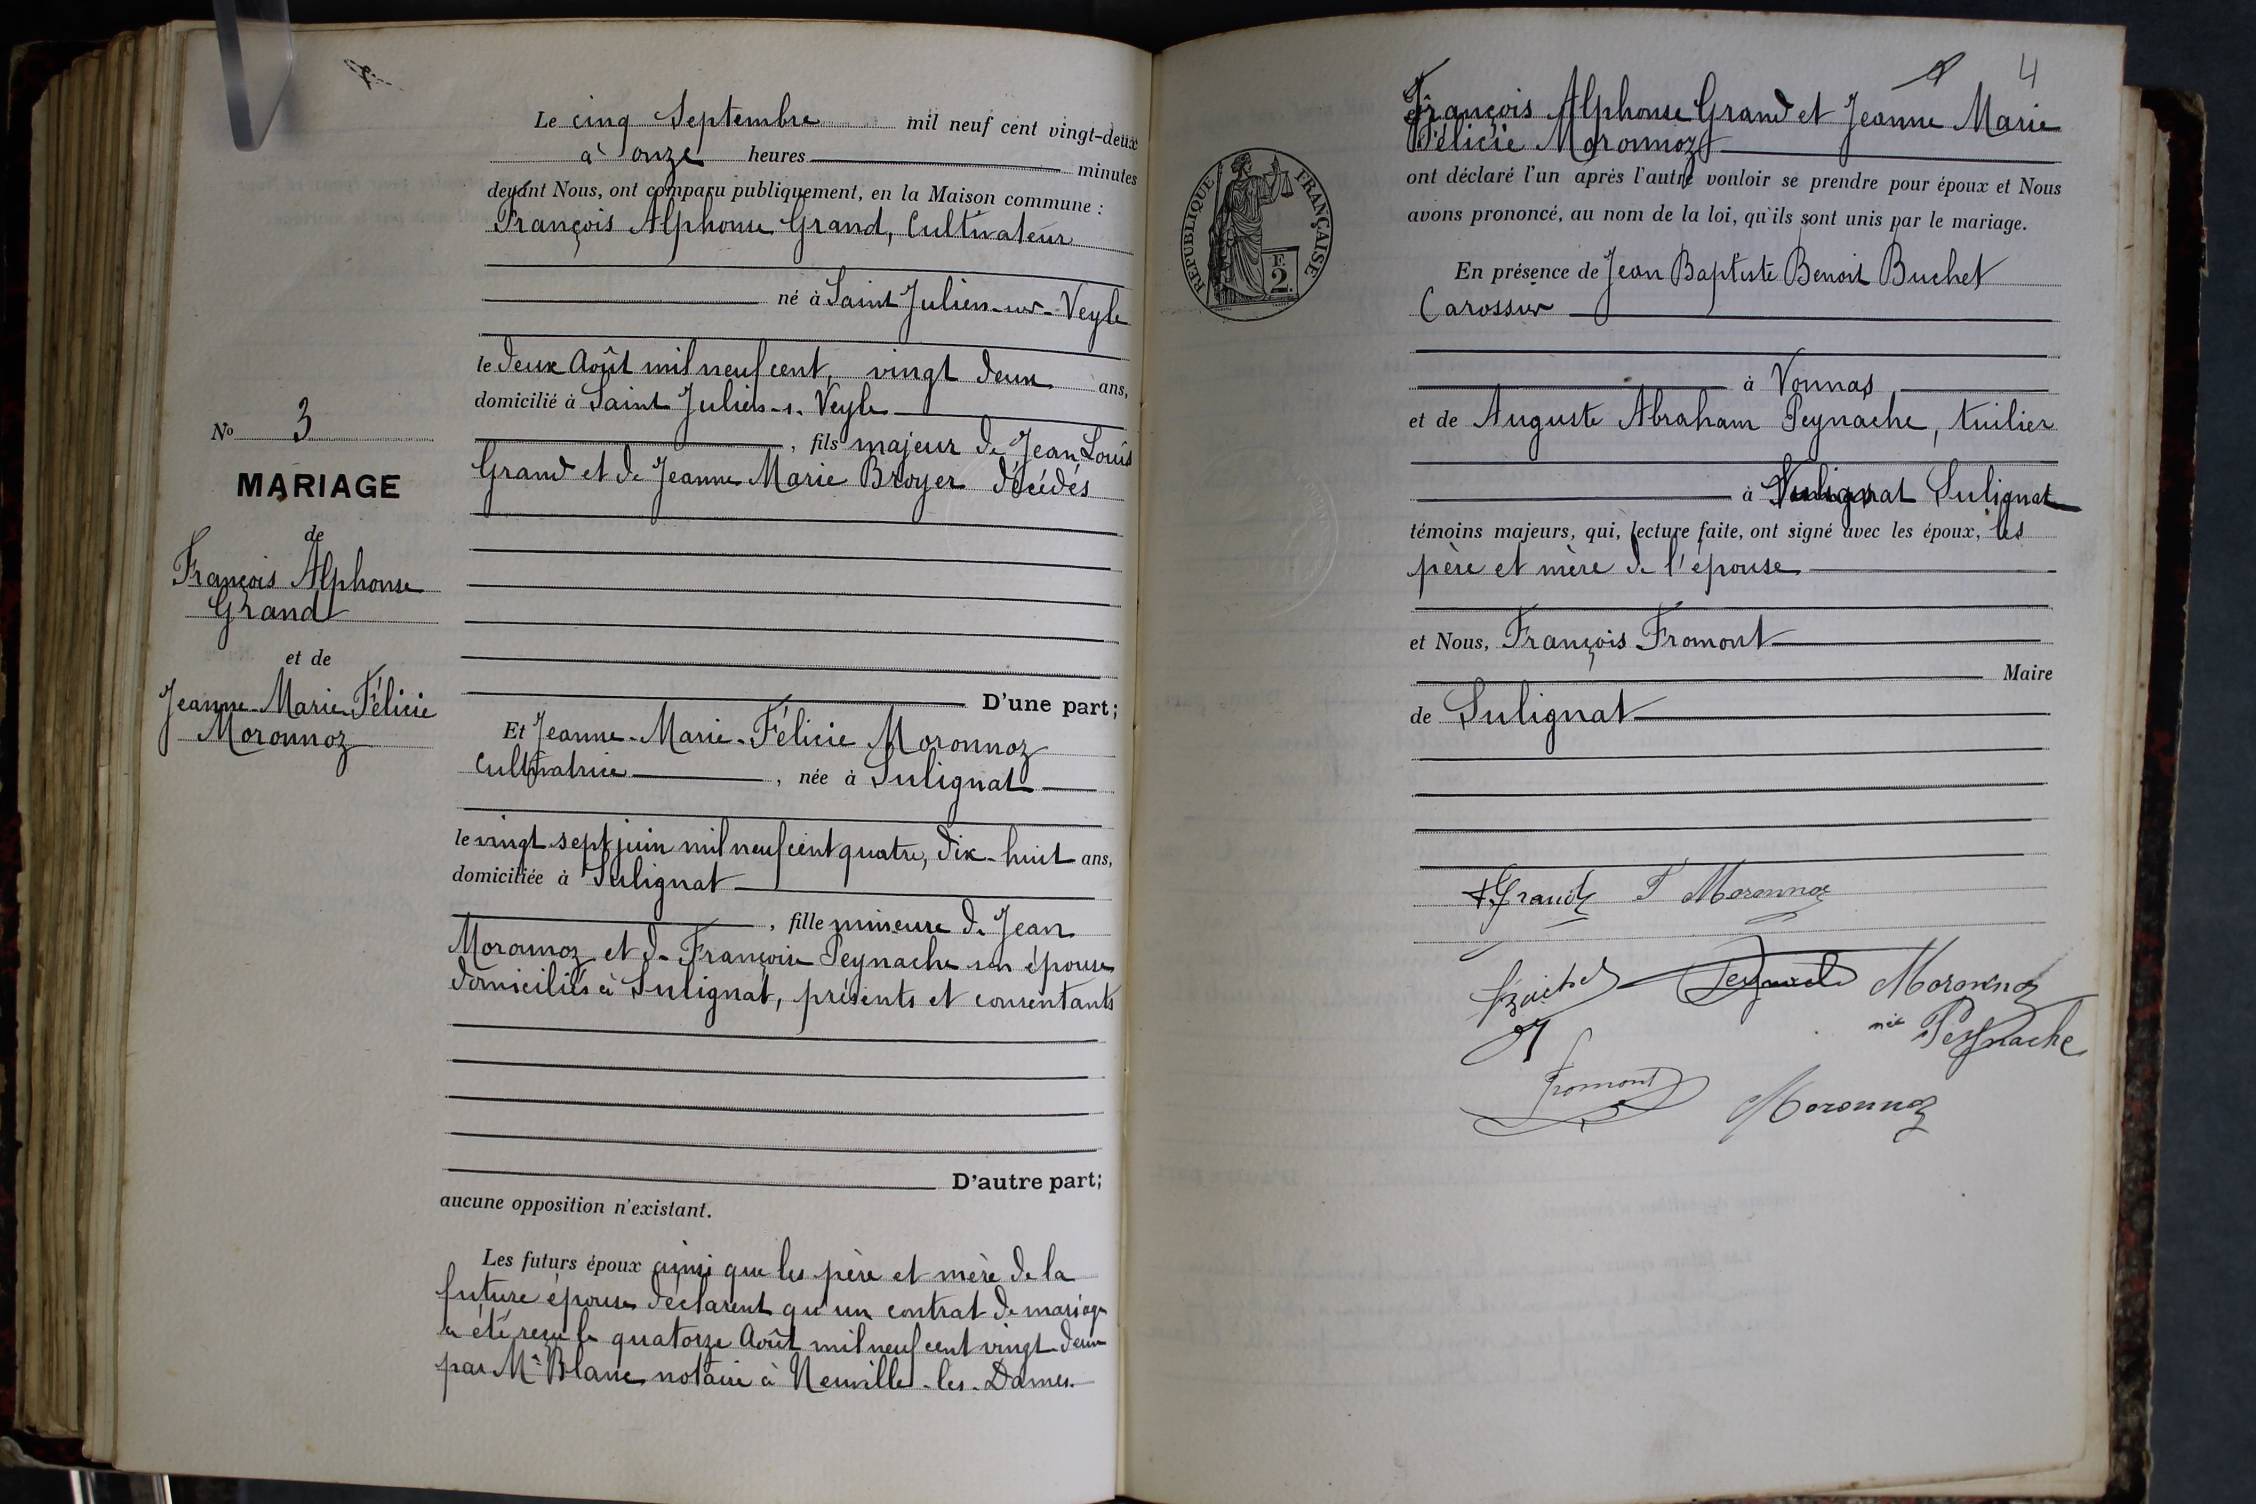 Le cinq Septembre mil neuf cent vingt-deux
à onze heures minutes
devant Nous, ont comparu publiquement, en la Maison commune :
François Alphonse Grand, Cultivateur
né à Saint Julien-sur-Veyle
le deux Août mil neuf cent, vingt deux ans,
domicilié à Saint Julien-s. Veyle
, fils majeur de Jean Louis
Grand et de Jeanne Marie Broyer décédés
No 3
MARIAGE
de
François Alphonse
Grand
et de
Jeanne-Marie-Félicie
Moronnoz
D'une part;
Et Jeanne-Marie-Félicie Moronnoz
Cultivatrice , née à Sulignat
le vingt sept juin mil neuf cent quatre, dix-huit ans,
domiciliée à Sulignat
, fille mineure de Jean
Moronnoz et de Françoise Peynache son épouse
domiciliés à Sulignat, présents et consentants
D'autre part;
aucune opposition n'existant.
Les futurs époux ainsi que les père et mère de la
future épouse déclarent qu'un contrat de mariage
a été reçu le quatorze Août mil neuf cent vingt-deux
par Me Blanc notaire à Neuville-les-Dames
4
RÉPUBLIQUE FRANÇAISE
F.
2.
François Alphonse Grand et Jeanne Marie
Félicie Moronnoz
ont déclaré l'un après l'autre vouloir se prendre pour époux et Nous
avons prononcé, au nom de la loi, qu'ils sont unis par le mariage.
En présence de Jean Baptiste Benoit Buchet
Carossier
à Vonnas
et de Auguste Abraham Peynache, tuilier
à Sulignat
témoins majeurs, qui, lecture faite, ont signé avec les époux, les
père et mère de l'épouse
et Nous, François Fromont
Maire
de Sulignat
Grand F Moronnoz
Peynache Moronnoz
née Peynache
Fromont Moronnoz